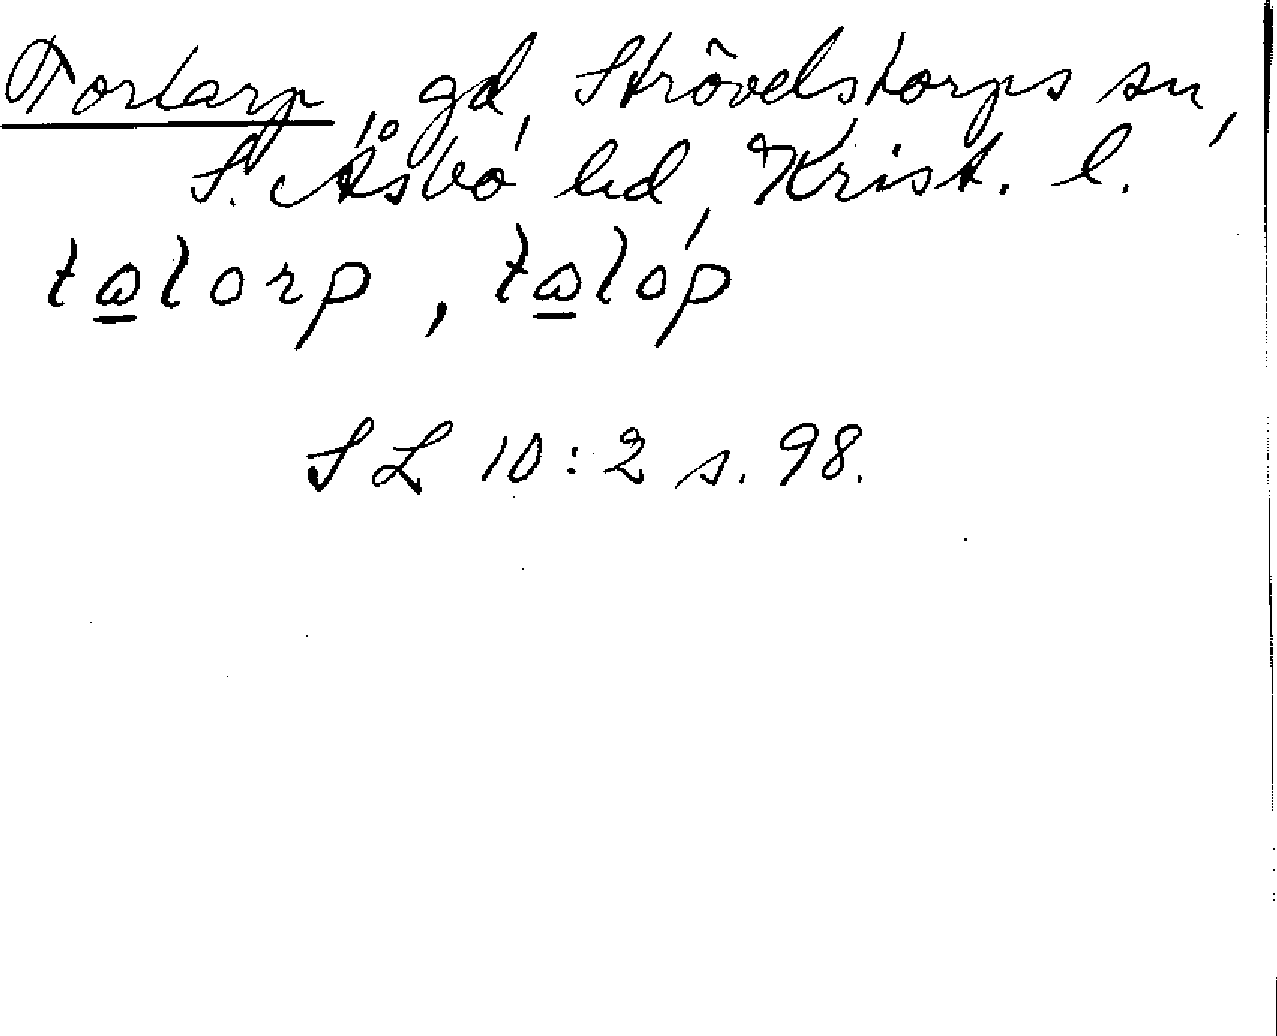 Torlarp, gd, Strövelstorps sn,
S. Åsbo hd, Krist. l.
tɷlorp, tɷlóp
S L 10:2 s. 98.